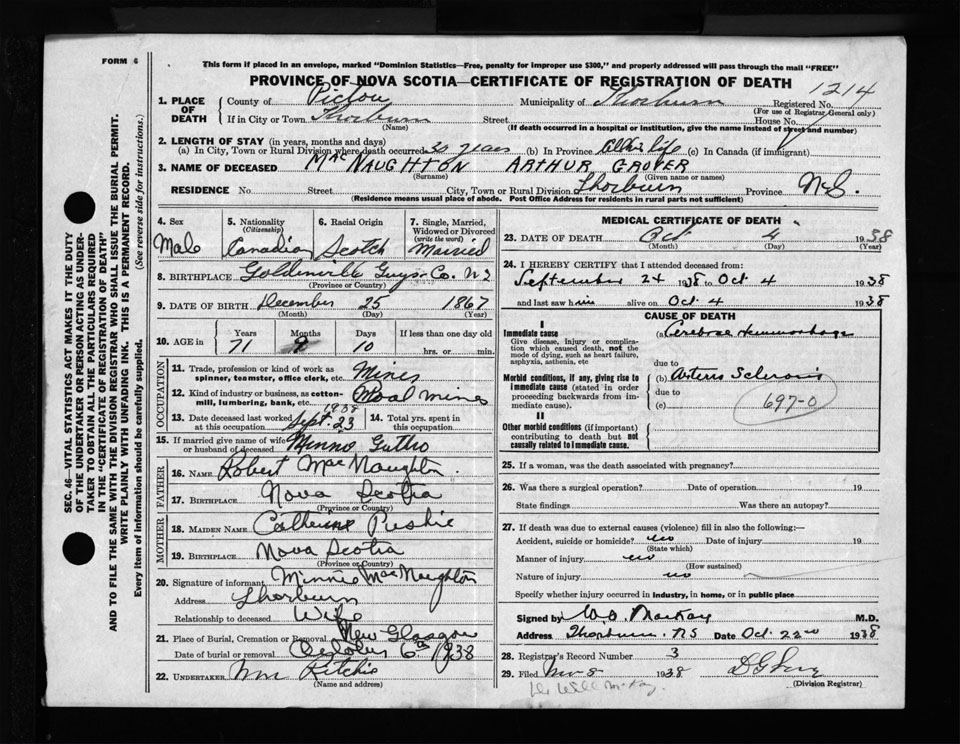 FORM 6
This form if placed in an envelope, marked "Dominion Statistics—Free, penalty for improper use $300," and properly addressed will pass through the mail "FREE"
PROVINCE OF NOVA SCOTIA—CERTIFICATE OF REGISTRATION OF DEATH
1214
1. PLACE OF DEATH
County of Pictou Municipality of Thorburn Registered No.
(For use of Registrar General only)
If in City or Town Thorburn Street House No.
(Name) (If death occurred in a hospital or institution, give the name instead of street and number)
2. LENGTH OF STAY (in years, months and days)
(a) In City, Town or Rural Division where death occurred 30 years (b) In Province All his life (c) In Canada (if immigrant)
3. NAME OF DECEASED MacNAUGHTON ARTHUR GROVER
(Surname) (Given name or names)
RESIDENCE No. Street City, Town or Rural Division Thorburn Province N.S.
(Residence means usual place of abode. Post Office Address for residents in rural parts not sufficient)
4. Sex Male
5. Nationality (Citizenship) Canadian
6. Racial Origin Scotch
7. Single, Married, Widowed or Divorced (write the word) Married
8. BIRTHPLACE Goldenville Guys Co. N S
(Province or Country)
9. DATE OF BIRTH December 25 1867
(Month) (Day) (Year)
10. AGE in Years 71 Months 9 Days 10 If less than one day old hrs. or min.
OCCUPATION
11. Trade, profession or kind of work as spinner, teamster, office clerk, etc.
12. Kind of industry or business, as cotton-mill, lumbering, bank, etc.
13. Date deceased last worked at this occupation Sept. 23 1938
14. Total yrs. spent in this occupation
15. If married give name of wife or husband of deceased Minnie Guthro
FATHER
16. NAME Robert MacNaughton
17. BIRTHPLACE Nova Scotia
(Province or Country)
MOTHER
18. MAIDEN NAME Catherine
19. BIRTHPLACE Nova Scotia
(Province or Country)
20. Signature of informant Minnie MacNaughton
Address Thorburn
Relationship to deceased Wife
21. Place of Burial, Cremation or Removal New Glasgow
Date of burial or removal October 6th 1938
22. UNDERTAKER Wm Ritchie
(Name and address)
MEDICAL CERTIFICATE OF DEATH
23. DATE OF DEATH Oct. 4 1938
(Month) (Day) (Year)
24. I HEREBY CERTIFY that I attended deceased from:
September 24 1938 to Oct 4 1938
and last saw him alive on Oct 4 1938
CAUSE OF DEATH
I
Immediate cause (a) Cerebral Hemmorhage
Give disease, injury or complication which caused death, not the mode of dying, such as heart failure, asphyxia, asthenia, etc
due to
Morbid conditions, if any, giving rise to immediate cause (stated in order proceeding backwards from immediate cause). (b) Arterio Sclerosis
due to
(c)
697-0
II
Other morbid conditions (if important) contributing to death but not causally related to immediate cause.
25. If a woman, was the death associated with pregnancy?
26. Was there a surgical operation? Date of operation 19
State findings Was there an autopsy?
27. If death was due to external causes (violence) fill in also the following:—
Accident, suicide or homicide? no Date of injury 19
(State which)
Manner of injury no
(How sustained)
Nature of injury no
Specify whether injury occurred in industry, in home, or in public place
Signed by W.D. MacKay M.D.
Address Thorburn NS Date Oct. 22nd 1938
28. Registrar's Record Number 3
29. Filed Nov 8 1938
(Division Registrar)
SEC. 46—VITAL STATISTICS ACT MAKES IT THE DUTY OF THE UNDERTAKER OR PERSON ACTING AS UNDERTAKER TO OBTAIN ALL THE PARTICULARS REQUIRED IN THE "CERTIFICATE OF REGISTRATION OF DEATH" AND TO FILE THE SAME WITH THE DIVISION REGISTRAR WHO SHALL ISSUE THE BURIAL PERMIT.
WRITE PLAINLY WITH UNFADING INK. THIS IS A PERMANENT RECORD.
Every item of information should be carefully supplied. (See reverse side for instructions.)